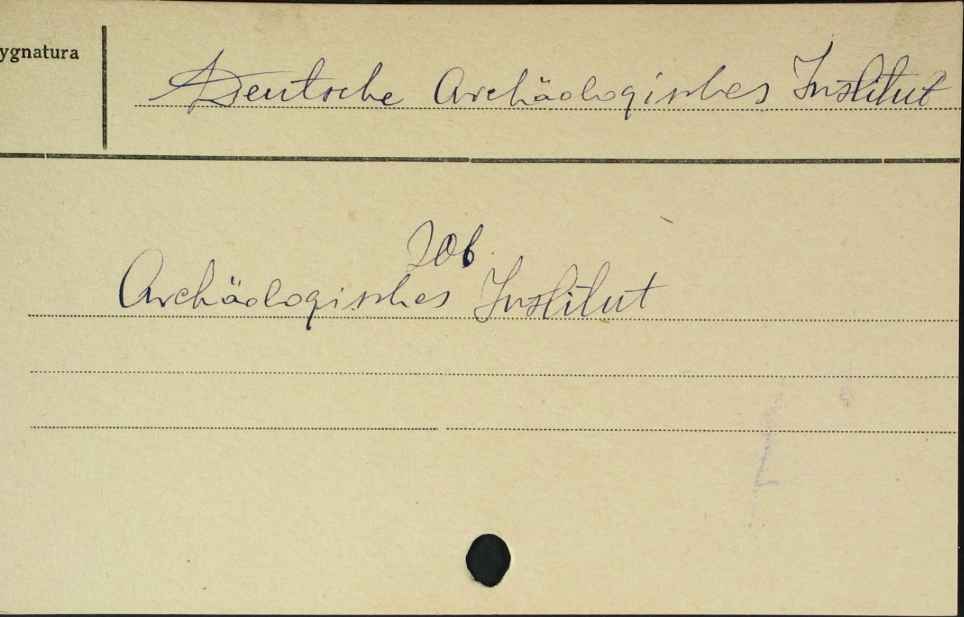 ygnatura
Deutsche Archäologisches Institut
Job
Archäologisches Institut